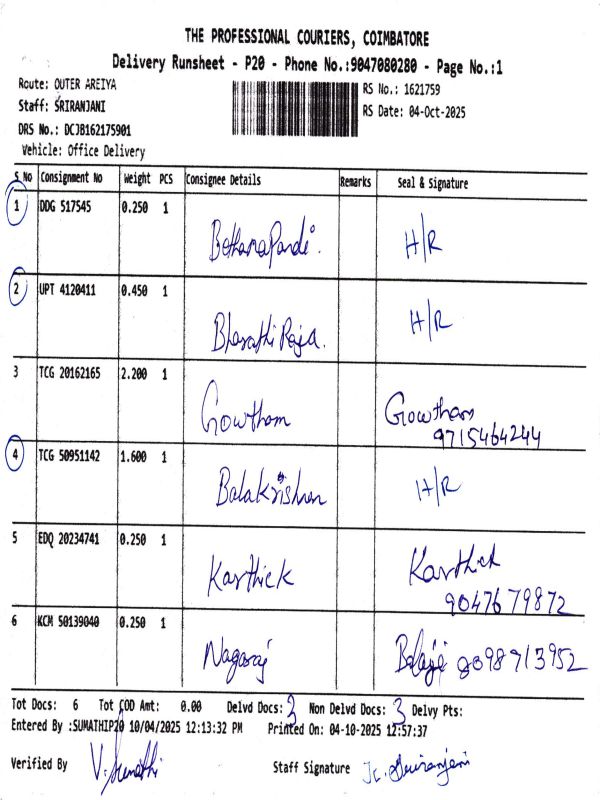 THE PROFESSIONAL COURIERS, COIMBATORE
Delivery Runsheet - P20 - Phone No.:9047080280 - Page No.:1
Route: OUTER AREIYA
RS No.: 1621759
Staff: SRIRANJANI
RS Date: 04-Oct-2025
DRS No.: DCJB162175901
Vehicle: Office Delivery
S No Consignment No Weight PCS Consignee Details Remarks Seal & Signature
1 DDG 517545 0.250 1
BothanaPandi. H/R
2 UPT 4120411 0.450 1
Bharathi Raja. H/R
3 TCG 20162165 2.200 1
Gowtham Gowtham
9715464244
4 TCG 50951142 1.600 1
Balakrishnan H/R
5 EDQ 20234741 0.250 1
Karthick Karthick
9047679872
6 KCM 50139040 0.250 1
Nagaraj Balaji 8098713952
Tot Docs: 6 Tot COD Amt: 0.00 Delvd Docs: 3 Non Delvd Docs: 3 Delvy Pts:
Entered By :SUMATHIP20 10/04/2025 12:13:32 PM Printed On: 04-10-2025 12:57:37
Verified By V. Sumathi Staff Signature K. Sriranjani